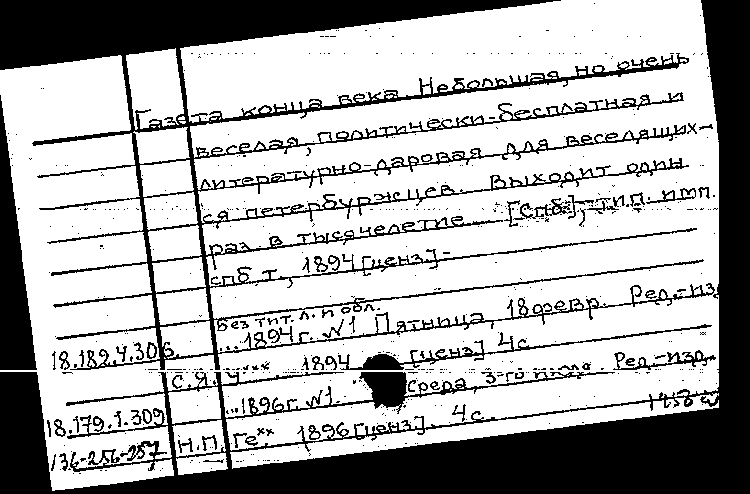 Газета конца века. Небольшая, но очень
веселая, политически-бесплатная и
литературно-даровая для веселящих-
ся петербуржцев. Выходит один
раз в тысячелетие. [Спб], тип. имп.
спб. т., 1894 [ценз.]-
Без тит. л. и обл.
18.182.4.306. ...1894 г. №1 Пятница, 18 февр. Ред.-изд
С.Я. У***. 1894 [ценз] 4с
18.179.1.309 ...1896г. №1. Среда, 3-го Ред.-изд.
136-256-257 Н.П. Ге** 1896 [ценз]. 4с.